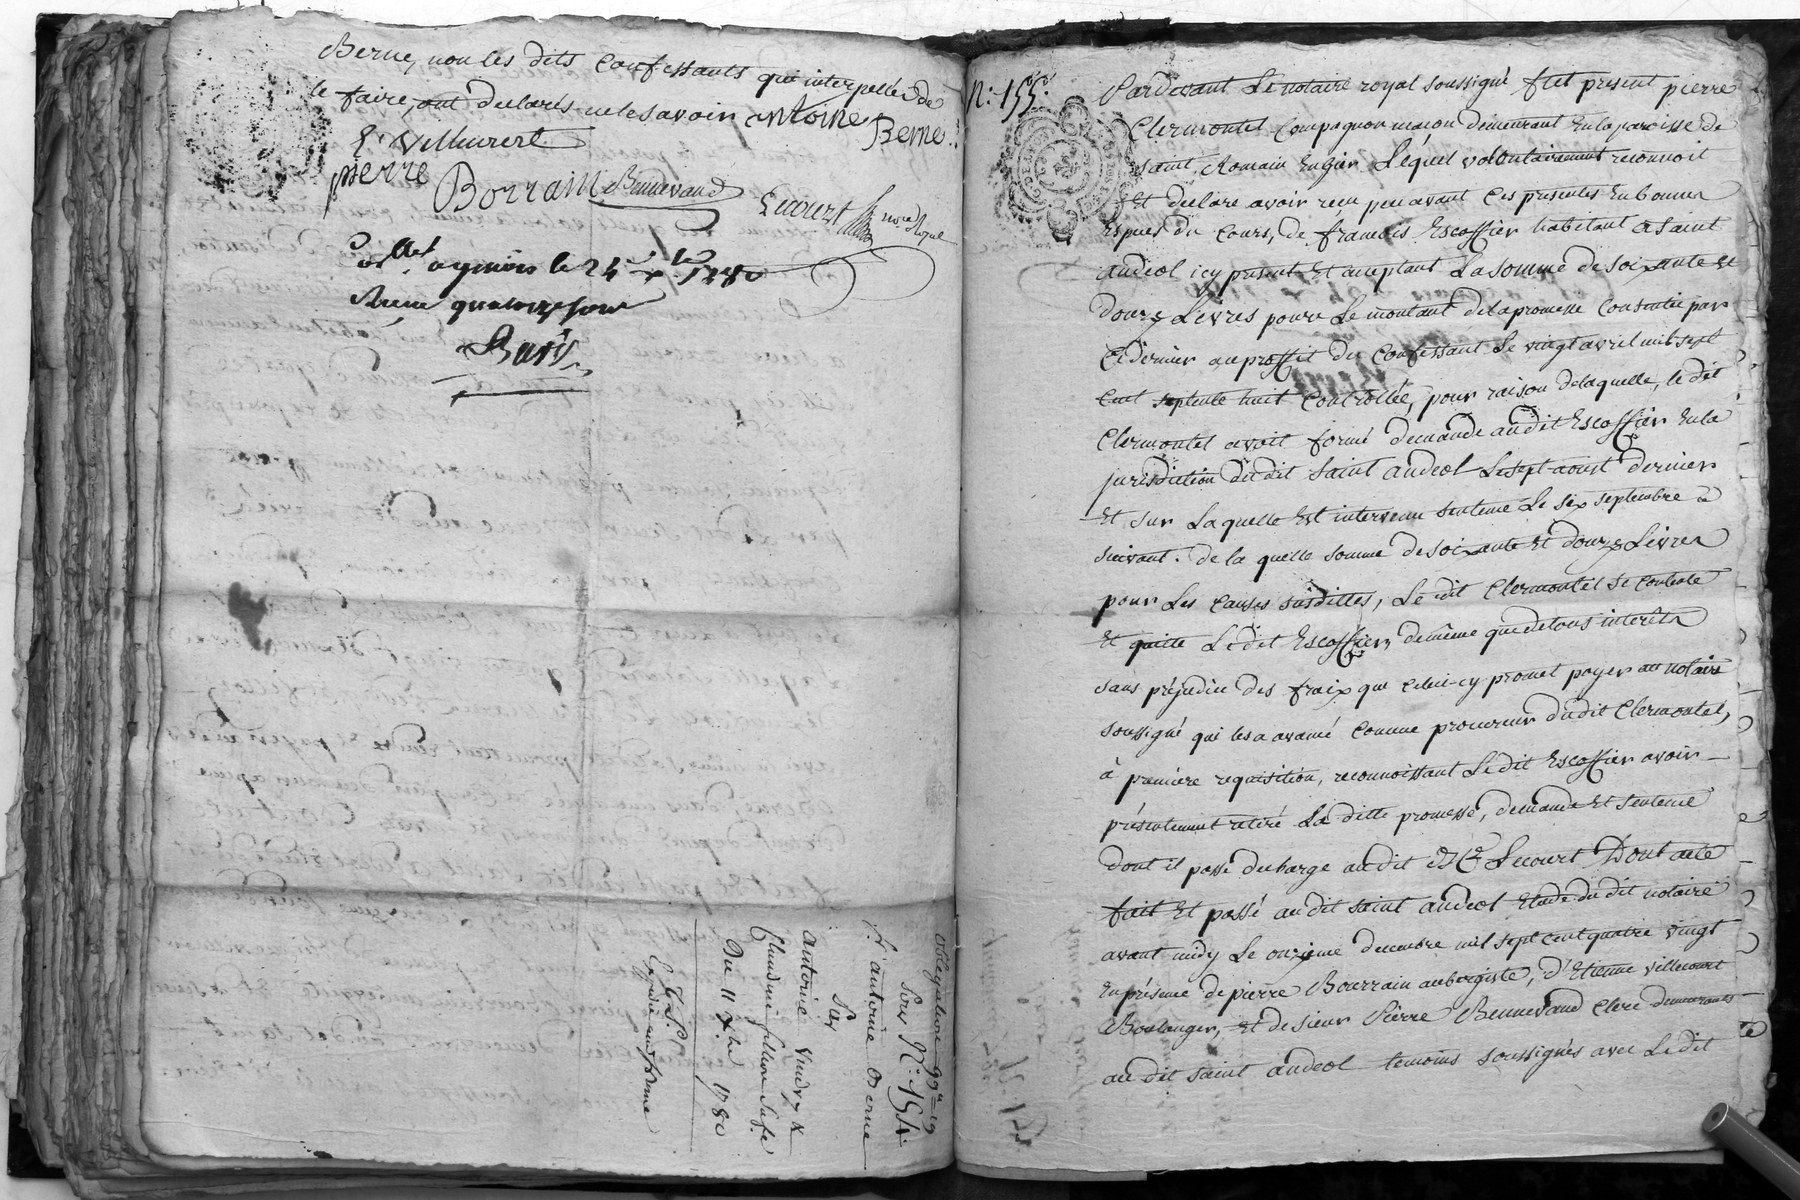 Berne, non les dits confessants qui interpellés de
le faire, ont declarés ne le savoir antoine
Berne
E. Villecourt
pierre Borrain Bennevand
Lecourt
a gmois le 24 xbre 1780
Reçu quatorze sous
obligation 99ll = 19
Sous N.º 154.
Sr. antoine Berne
Sur
antoine Vindry &
Claudine sa fe
Du 11 xbre 1780
N.º 155.
Pardevant Le notaire royal soussigné fut present pierre
Clermontel compagnon maçon demeurant en la paroisse de
saint Romain en gier Lequel volontairement reconnoit
Et declare avoir reçu peu avant Ces presentes En bonnes
Especes du cours, de francois Escoffier habitant a Saint
andeol icy present Et acceptant La somme de soixante Et
douze Livres pour Le montant de la promesse consentie par
ce dernier au proffit du Confessant Le vingt avril mil sept
cent septente huit Controllée, pour raison de laquelle, le dit
Clermontel avoit formé demande au dit Escoffier En la
jurisdiction du dit saint andeol Le sept aoust dernier
Et sur Laquelle Est intervenu sentence Le six septembre
suivant. de la quelle somme de soixante Et douze Livres
pour Les causes susdittes, Le dit Clermontel se contente
Et quitte Le dit Escoffier, de même que de tous interêts
sans préjudice des fraix que celui-cy promet payer au notaire
soussigné qui les a avancé comme procureur du dit Clermontel,
à première requisition, reconnoissant Le dit Escoffier avoir
présentement retiré La ditte promesse, demande Et sentence
dont il passe decharge au dit Me Lecourt Dont acte
fait Et passé au dit saint andeol Etude du dit notaire
avant midy Le onzieme decembre mil sept cent quatre vingt
En présence de pierre Bourrain aubergiste, d'Etienne Villecourt
Boulanger, et de sieur Pierre Bennevand Clerc demeurants
au dit saint andeol temoins soussignés avec Le dit